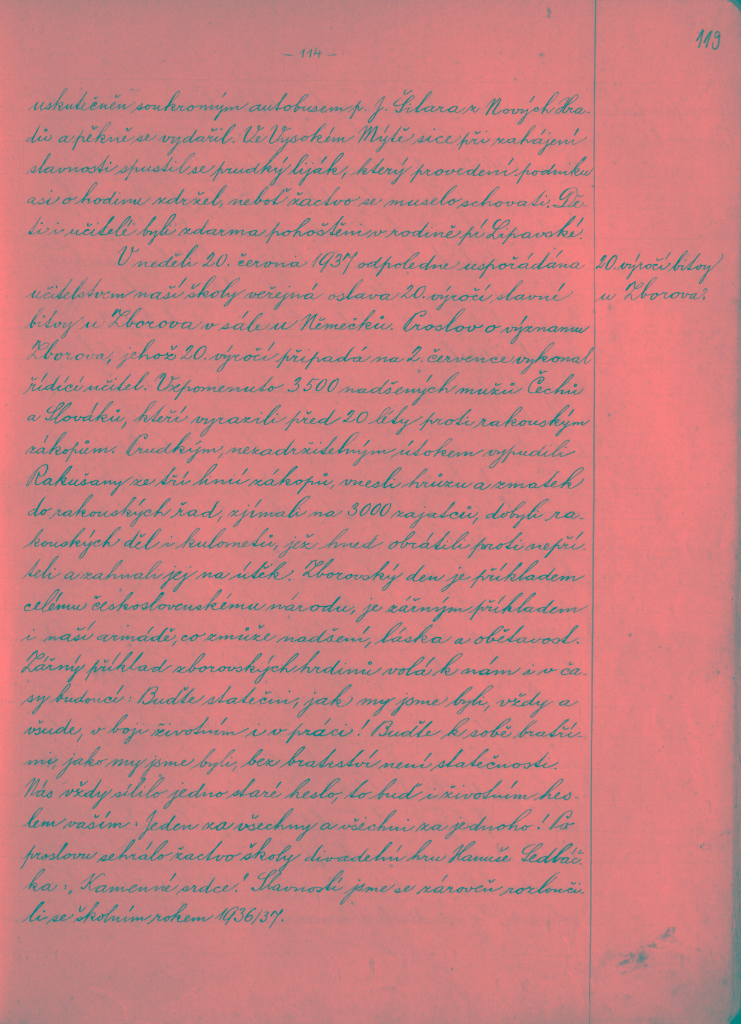 119
– 114 –
uskutečněn soukromým autobusem p. J. Šilara z Nových Hra-
dů a pěkně se vydařil. Ve Vysokém Mýtě sice při zahájení
slavnosti spustil se prudký liják, který provedení podniku
asi o hodinu zdržel, neboť žactvo se muselo schovati. Dě-
ti i učitelé byli zdarma pohoštěni v rodině pí Lipavské.
V neděli 20. června 1937 odpoledne uspořádána
20. výročí bitvy
učitelstvem naší školy veřejná oslava 20. výročí slavné
u Zborova.
bitvy u Zborova v sále u Němečků. Proslov o významu
Zborova, jehož 20. výročí připadá na 2. července vykonal
řídící učitel. Vzpomenuto 3500 nadšených mužů Čechů
a Slováků, kteří vyrazili před 20 léty proti rakouským
zákopům. Prudkým, nezadržitelným útokem vypudili
Rakušany ze tří linií zákopů, vnesli hrůzu a zmatek
do rakouských řad, zjímali na 3000 zajatců, dobyli ra-
kouských děl i kulometů, jež hned obrátili proti nepří-
teli a zahnali jej na útěk. Zborovský den je příkladem
celému československému národu, je zářným příkladem
i naší armádě, co zmůže nadšení, láska a obětavost.
Zářný příklad zborovských hrdinů volá k nám i v ča-
sy budoucí: Buďte stateční, jak my jsme byli, vždy a
všude, v boji životním i v práci! Buďte k sobě bratří-
mi, jako my jsme byli, bez bratrství není statečnosti.
Nás vždy sílilo jedno staré heslo, to buď i životním hes-
lem vaším: Jeden za všechny a všichni za jednoho! Po
proslovu sehrálo žactvo školy divadelní hru Hanuše Sedláč-
ka: „Kamenné srdce". Slavností jsme se zároveň rozlouči-
li se školním rokem 1936/37.